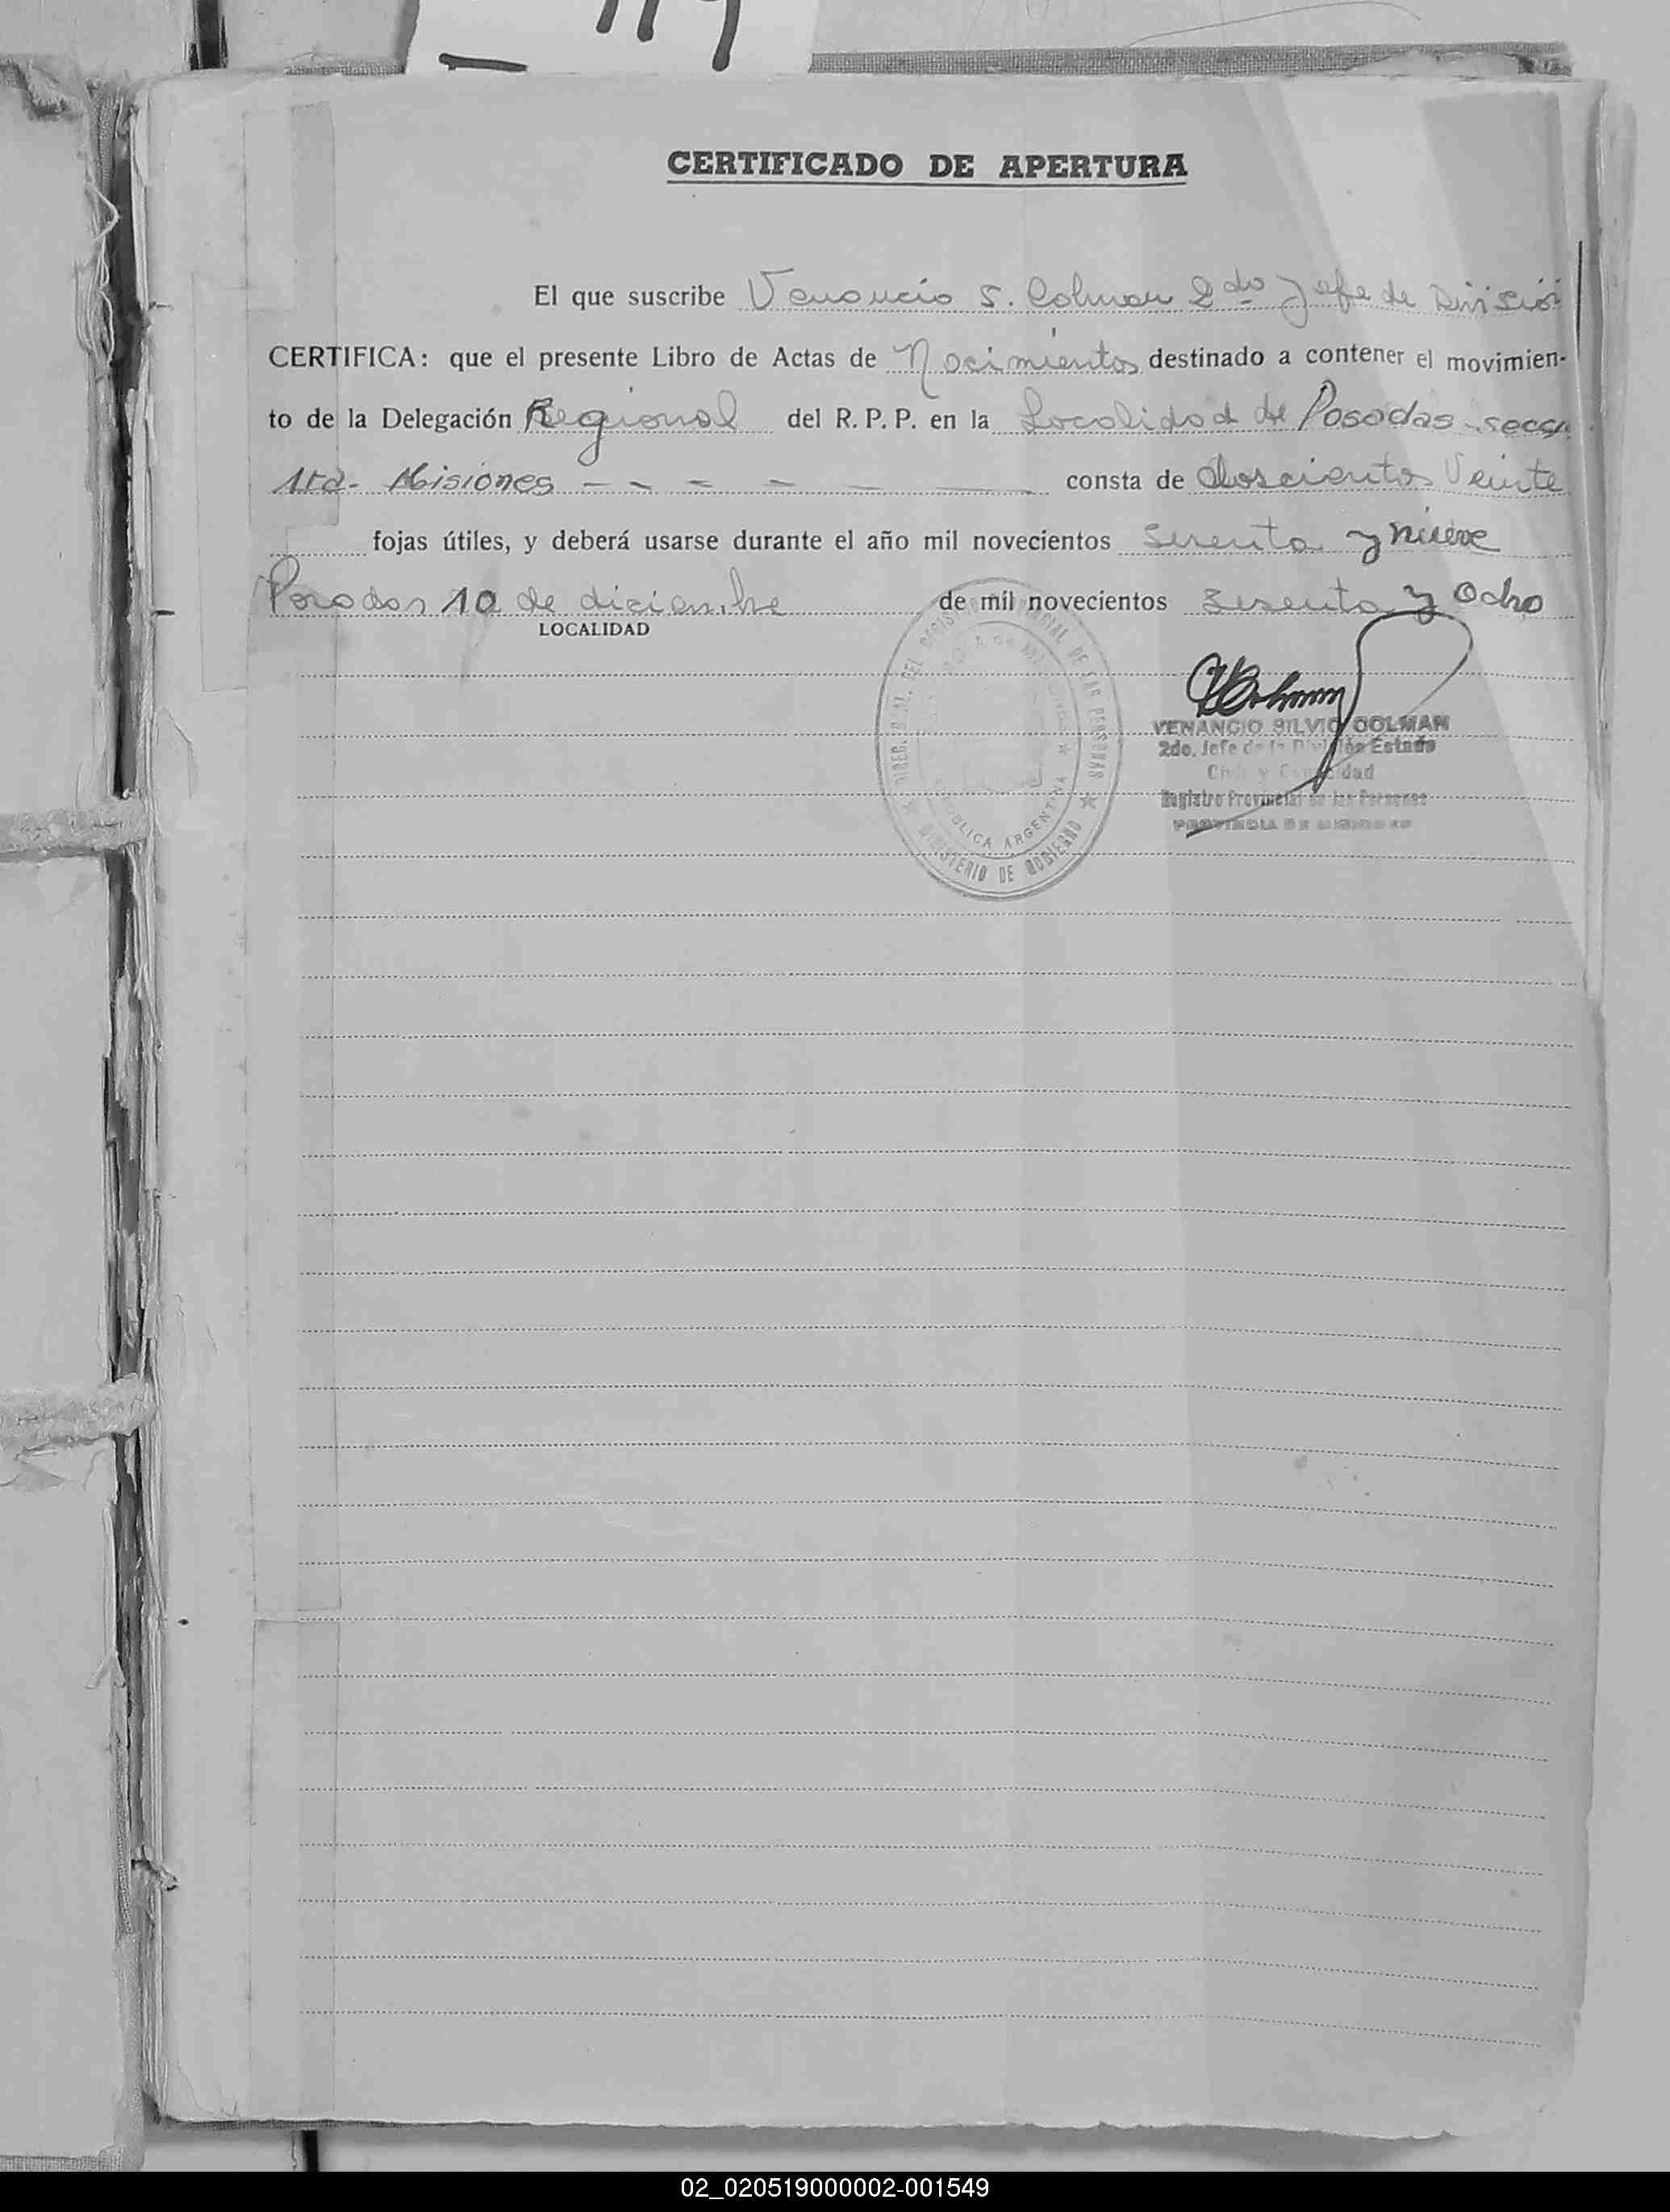 CERTIFICADO DE APERTURA
El que suscribe Venancio S. Colman 2do Jefe de División
CERTIFICA: que el presente Libro de Actas de Nacimientos destinado a contener el movimien-
to de la Delegación Regional del R. P. P. en la Localidad de Posadas - secc.
1ra - Misiones - - - - - consta de doscientos Veinte
fojas útiles, y deberá usarse durante el año mil novecientos sesenta y nueve
Posadas 10 de diciembre de mil novecientos sesenta y ocho
LOCALIDAD
DIREC. GRAL. DEL REGISTRO PROVINCIAL DE LAS PERSONAS
REPUBLICA ARGENTINA
MINISTERIO DE GOBIERNO
VColman
VENANCIO SILVIO COLMAN
2do. Jefe de la División Estado
Civil y Capacidad
Registro Provincial de las Personas
PROVINCIA DE MISIONES
02_020519000002-001549